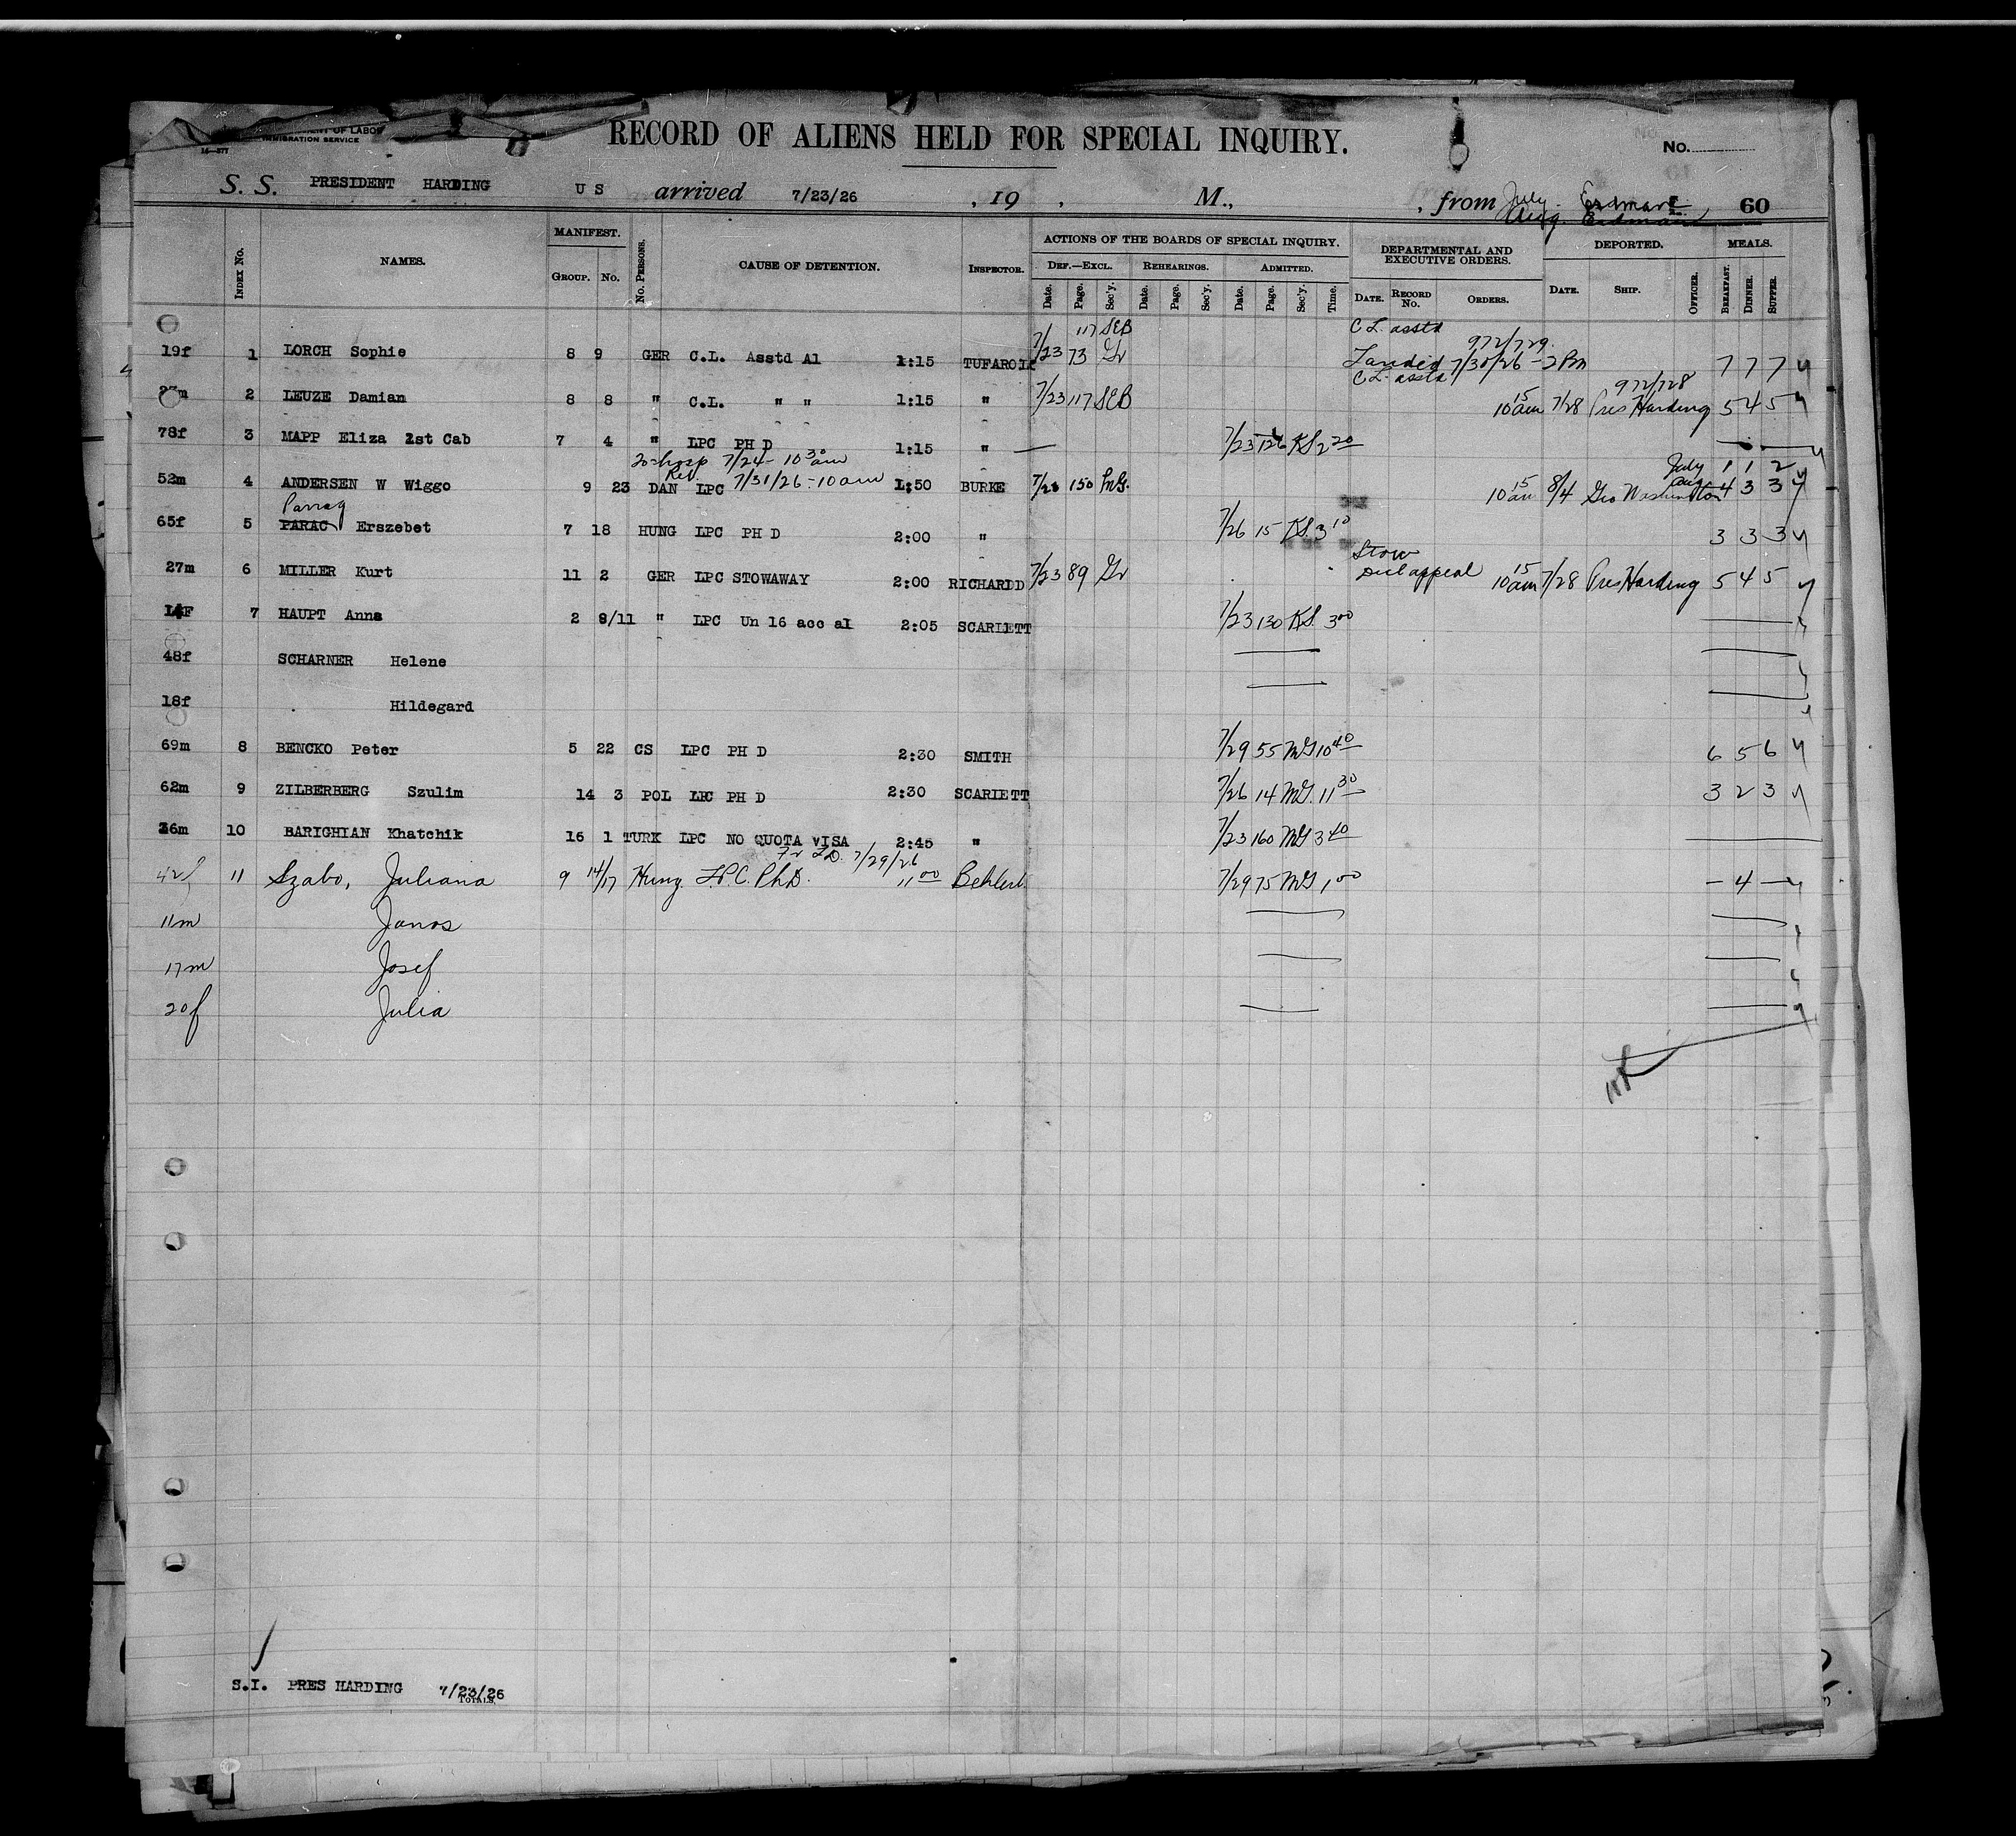 OF LABOR
IMMIGRATION SERVICE
RECORD OF ALIENS HELD FOR SPECIAL INQUIRY.
No.
S. S. PRESIDENT HARDING U S arrived 7/23/26 , 19 , M., , from July. Erdman 60
Aug. Erdman
INDEX No. NAMES. MANIFEST. GROUP. No. No. PERSONS. CAUSE OF DETENTION. INSPECTOR.
ACTIONS OF THE BOARDS OF SPECIAL INQUIRY. DEPARTMENTAL AND EXECUTIVE ORDERS. DEPORTED. MEALS.
DEF.—EXCL. REHEARINGS. ADMITTED.
Date. Page. Sec'y. Date. Page. Sec'y. Date. Page. Sec'y. Time. DATE. RECORD No. ORDERS. DATE. SHIP. OFFICER. BREAKFAST. DINNER. SUPPER.
117 SEB C L asstd 972/729
19f 1 LORCH Sophie 8 9 GER C.L. Asstd Al 1:15 7/23 73 Gr Landed 7/30/26 - 2 Pm 7 7 7
C L asstd 972/728
2 LEUZE Damian 8 8 " C.L. " " 1:15 " 7/23 117 SEB 10 15 am 7/28 Pres Harding 5 4 5
78f 3 MAPP Eliza 1st Cab 7 4 " LPC PH D 1:15 " — 7/23 126 KS 2 20 —
To hosp 7/24 - 10 30 am
Ret. 7/31/26 - 10 am July 1 1 2
52m 4 ANDERSEN W Wiggo 9 23 DAN LPC 1:50 BURKE 150 10 15 am 8/4 Geo Washington Aug 4 3 3
Parrag
65f 5 PARAC Erszebet 7 18 HUNG LPC PH D 2:00 " 7/26 15 KS. 3 10 3 3 3
Stow
27m 6 MILLER Kurt 11 2 GER LPC STOWAWAY 2:00 RICHARDD 7/23 89 Gr Decl appeal 10 15 am 7/28 Pres Harding 5 4 5
14F 7 HAUPT Anna 2 9/11 " LPC Un 16 acc al 2:05 SCARLETT 7/23 130 KS. 3 00 —
48f SCHARNER Helene
18f Hildegard
69m 8 BENCKO Peter 5 22 CS LPC PH D 2:30 SMITH 7/29 55 MG 10 40 6 5 6
62m 9 ZILBERBERG Szulim 14 3 POL LPC PH D 2:30 SCARLETT 7/26 14 MG. 11 30 3 2 3
36m 10 BARIGHIAN Khatchik 16 1 TURK LPC NO QUOTA VISA 2:45 " 7/23 160 MG 3 40 —
Fr T.D. 7/29/26
42f 11 Szabo, Juliana 9 14/17 Hung. L.P.C. Ph.D. 11 00 7/29 75 MG 1 00 — 4 —
11m Janos
17m Josef
20f Julia
S.I. PRES HARDING 7/23/26
TOTALS.